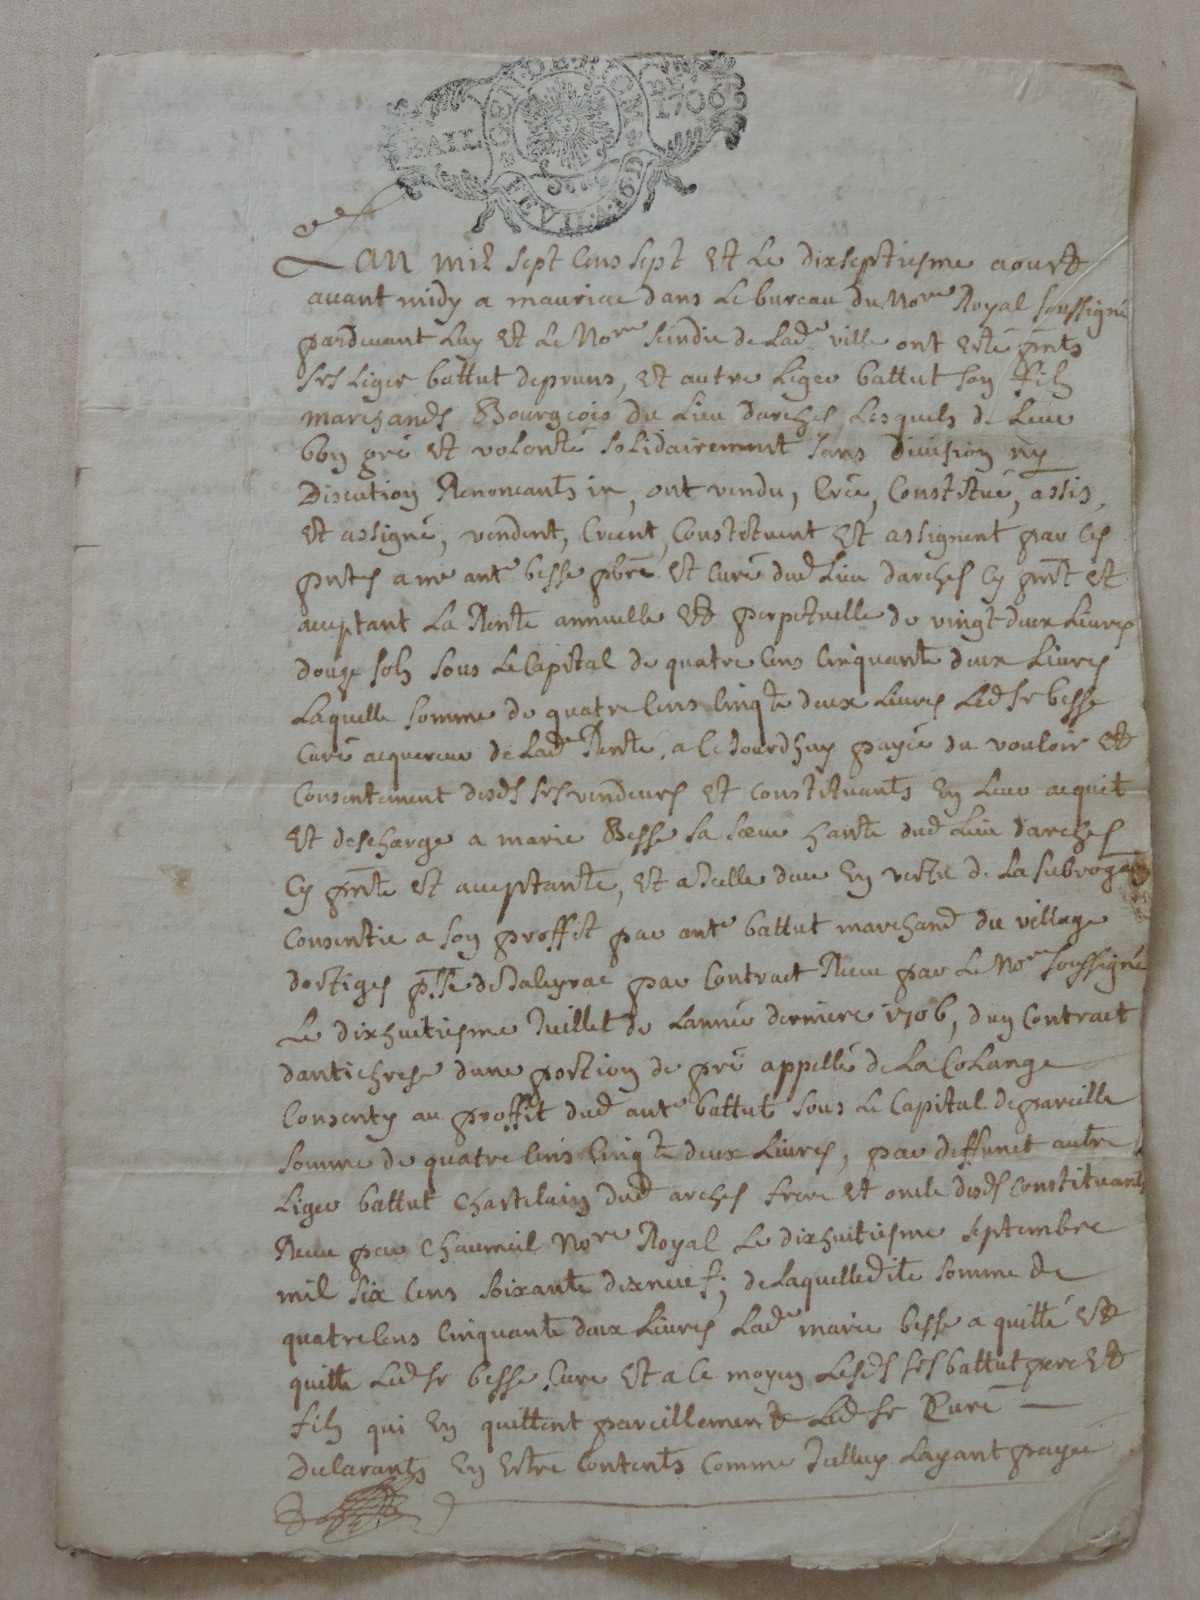 BAIL 1706
Lan mil sept cens sept et le dixseptiesme aoust
avant midy a mauriac dans le bureau du Nore Royal soussigné
pardevant luy et le Nore scindic de lade ville ont esté pnts
srs liger battut depruns, et autre liger battut son fils
marchands Bourgeois du lieu darches lesquels de leur
bon gré et volonté solidairement sans division ny
discution Renoncants ir, ont vendu, Creé, Constitué, assis,
et assigné, vendent, Creent, Constituent et assignent par ces
pntes a me ante besse pbre et Curé dud lieu darches cy pnt et
aceptant la Rente annuelle et perpetuelle de vingt deux livres
douze sols sous le Capital de quatre cens cinquante deux livres
laquelle somme de quatre cens cinqte deux livres led sr besse
Curé acquereur de lade Rente, a ce Jourdhuy payée du vouloir et
Consentement desds srs vendeurs et constituants en leur acquit
et descharge a marie Besse sa soeur hante dud lieu darches
cy pnte et aceptante, et a Icelle due en vertu de la subrogaon
Consentie a son proffit par ante battut marchand du village
dortiges psse de Jaleyrac par Contract Receu par le Nore soussigné
le dixhuitiesme Juillet de lannée derniere 1706, dun Contract
dantichrese dune portion de pré appellé de la Colange
Consenty au proffit dud ante battut sous le Capital de pareille
somme de quatre cens cinqte deux livres, par deffunct autre
liger battut Chastelain dud arches frere et oncle desds constituants
Receu par Chaumeil Nore Royal le dixhuitiesme septembre
mil six cens soixante dixneuf; de laquelle dite somme de
quatre cens cinquante deux livres lade marie besse a quitté et
quitte led sr besse Curé et a ce moyen lesds srs battut pere et
fils qui en quittent pareillement led sr Curé
declarants en estre contents comme Icelluy layant payée